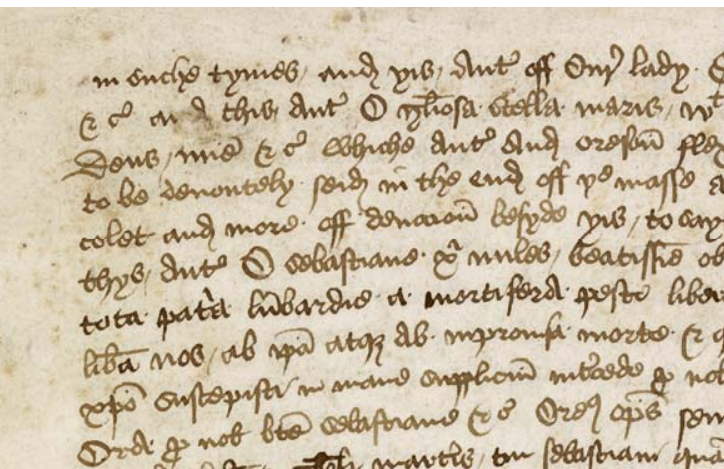 in suche tymes, and yis, Ant' off Our lady.
& c' this, Ant' O gl'iosa stella maris,
Deus, mie' & c' Whiche Ant' And oresou'
to be deuoutely seid in the end off ye masse
colet and more off deuociou' besyde yis, to say
thys, Ant' O sebastiane x' miles, beatissi'e
tota pat'a lu'bardie a mortifera peste
lib'a nos, ab ip'a atq, Ab inprouisa morte &
xpo' suscepisti in mane suppliciu' int'cede p nob
Ora p nob b'te sebastiane & c'
mart's, tui sebastiani